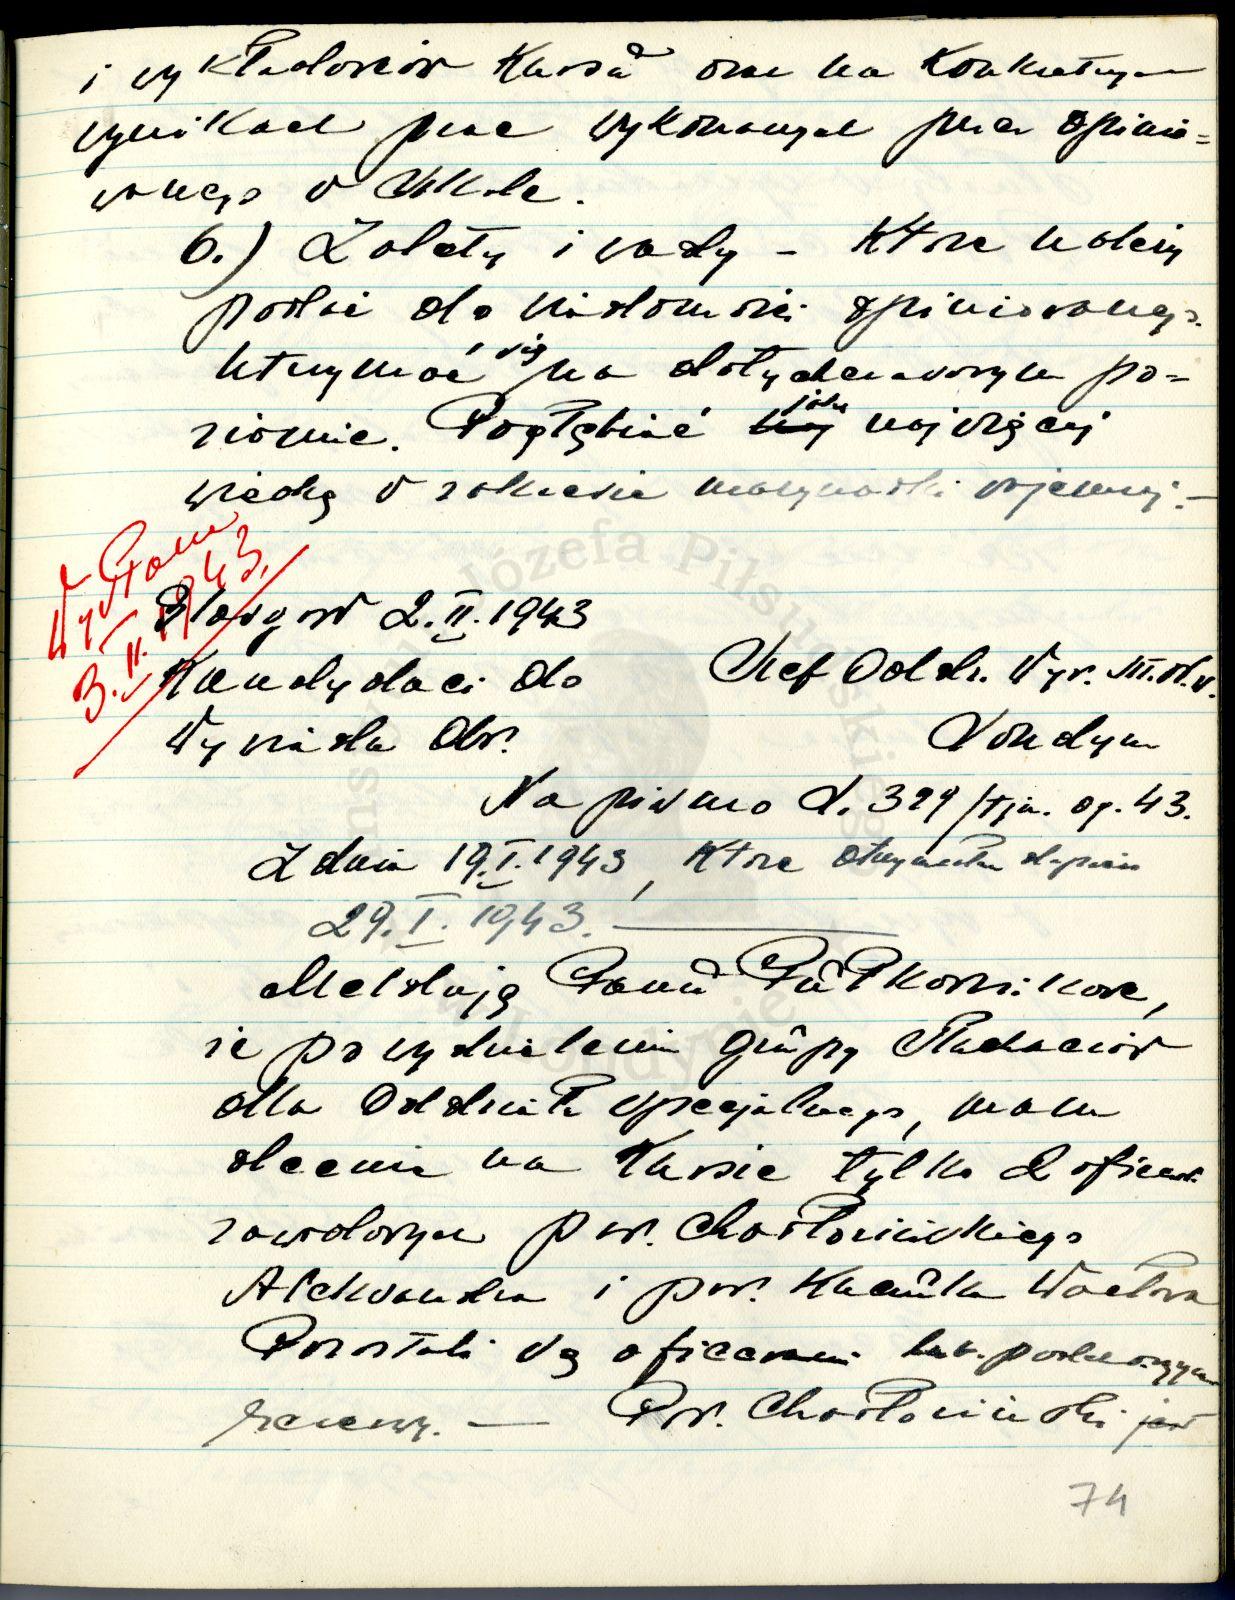 i wykładowców Kursu oraz na Konkretnych
wynikach prac wykonanych przez opinio=
wanego w Szkole.
6.) Zalety i wady - które należy
podać do wiadomości opiniowanego.
Utrzymać się na dotychczasowym po=
ziomie. Pogłębiać jak najwięcej
wiedzę w zakresie marynarki wojennej.-
Wysłane
3.II.1943.
Glasgow 2.II.1943
Kandydaci do
Wywiadu Obr.
Szef Oddz. Wyw. M.S.W.
Londyn
Na pismo L. 329/tjn. og. 43.
Z dnia 19.I.1943, które otrzymałem dopiero
29.I.1943.
Melduję Panu Pułkownikowi,
że po wydzieleniu grupy Słuchaczów
dla Oddziału specjalnego, mam
obecnie na Kursie tylko 2 oficerów
zawodowych por. Chodłowińskiego
Aleksandra i por. Wacława
Pozostali są oficerami lub podchorążymi
rezerwy. — Por. jest
74
Józefa Piłsudskiego
w Londynie